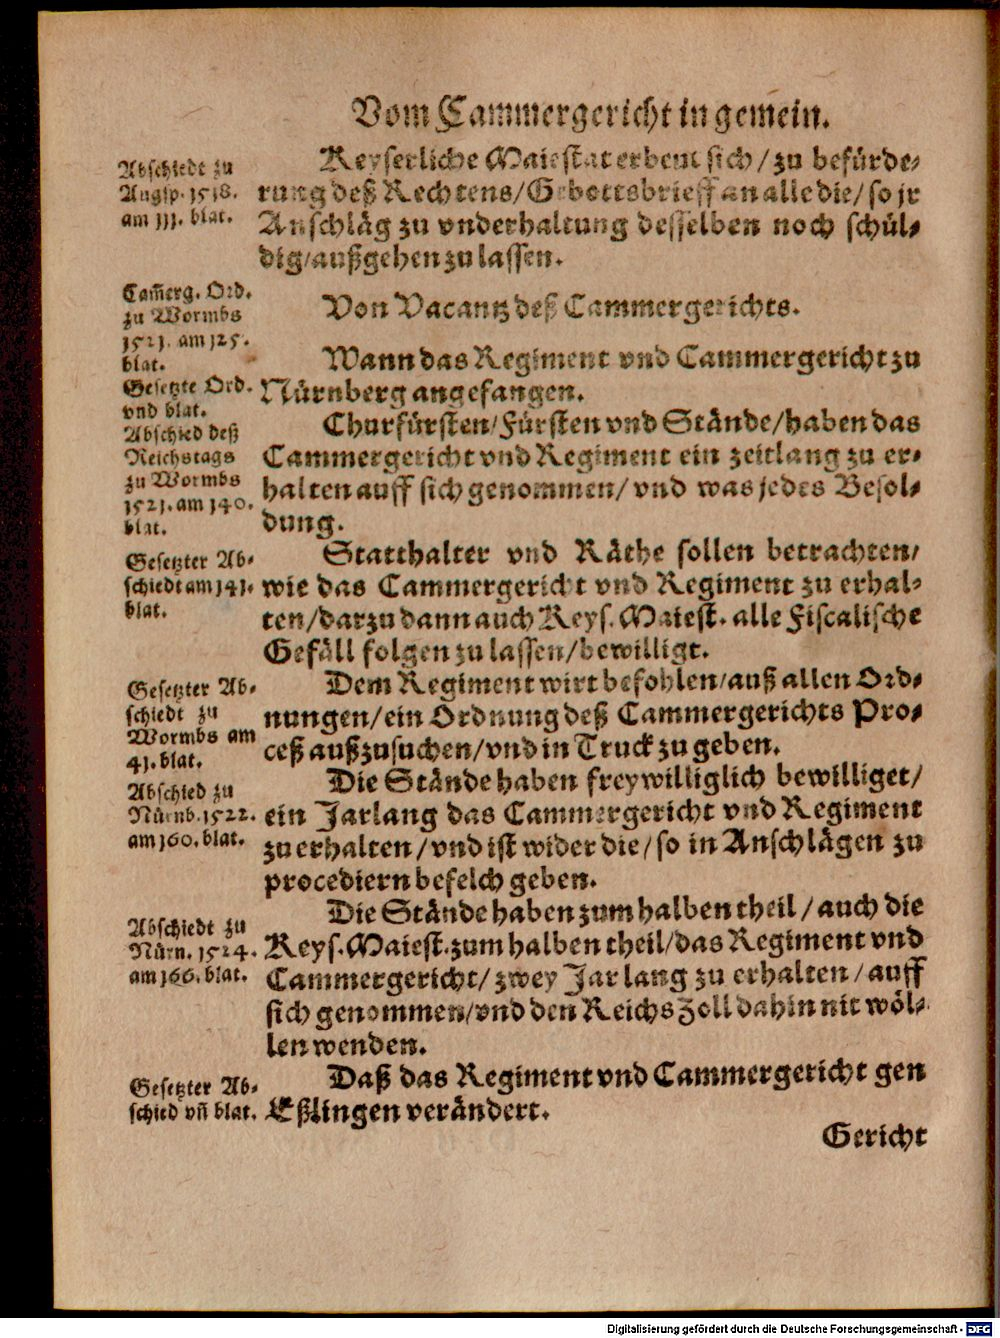 Vom Cammergericht in gemein.
Abschiedt zu
Augsp. 1518.
am 111. blat.
Keyserliche Maiestat erbeut sich/ zu befürde-
rung deß Rechtens/ Gebottsbrieff an alle die/ so jr
Anschläg zu vnderhaltung desselben noch schül-
dig/ außgehen zu lassen.
Cam̃erg. Ord.
zu Wormbs
1521. am 125.
blat.
Von Vacantz deß Cammergerichts.
Wann das Regiment vnd Cammergericht zu
Nürnberg angefangen.
Gesetzte Ord.
vnd blat.
Abschied deß
Reichstags
zu Wormbs
1521. am 140.
blat.
Churfürsten/ Fürsten vnd Stände/ haben das
Cammergericht vnd Regiment ein zeitlang zu er-
halten auff sich genommen/ vnd was jedes Besol-
dung.
Gesetzter Ab-
schiedt am 141.
blat.
Statthalter vnd Räthe sollen betrachten/
wie das Cammergericht vnd Regiment zu erhal-
ten/ darzu dann auch Keys. Maiest. alle Fiscalische
Gefäll folgen zu lassen/ bewilligt.
Gesetzter Ab-
schiedt zu
Wormbs am
41. blat.
Dem Regiment wirt befohlen/ auß allen Ord-
nungen/ ein Ordnung deß Cammergerichts Pro-
ceß außzusuchen/ vnd in Truck zu geben.
Abschied zu
Nürnb. 1522.
am 160. blat.
Die Stände haben freywilliglich bewilliget/
ein Jarlang das Cammergericht vnd Regiment
zu erhalten/ vnd ist wider die/ so in Anschlägen zu
procediern befelch geben.
Abschiedt zu
Nürn. 1524.
am 166. blat.
Die Stände haben zum halben theil/ auch die
Keys. Maiest. zum halben theil/ das Regiment vnd
Cammergericht/ zwey Jar lang zu erhalten/ auff
sich genommen/ vnd den Reichs Zoll dahin nit wöl-
len wenden.
Gesetzter Ab-
schied vn̄ blat.
Daß das Regiment vnd Cammergericht gen
Eßlingen verändert.
Gericht
Digitalisierung gefördert durch die Deutsche Forschungsgemeinschaft - DFG